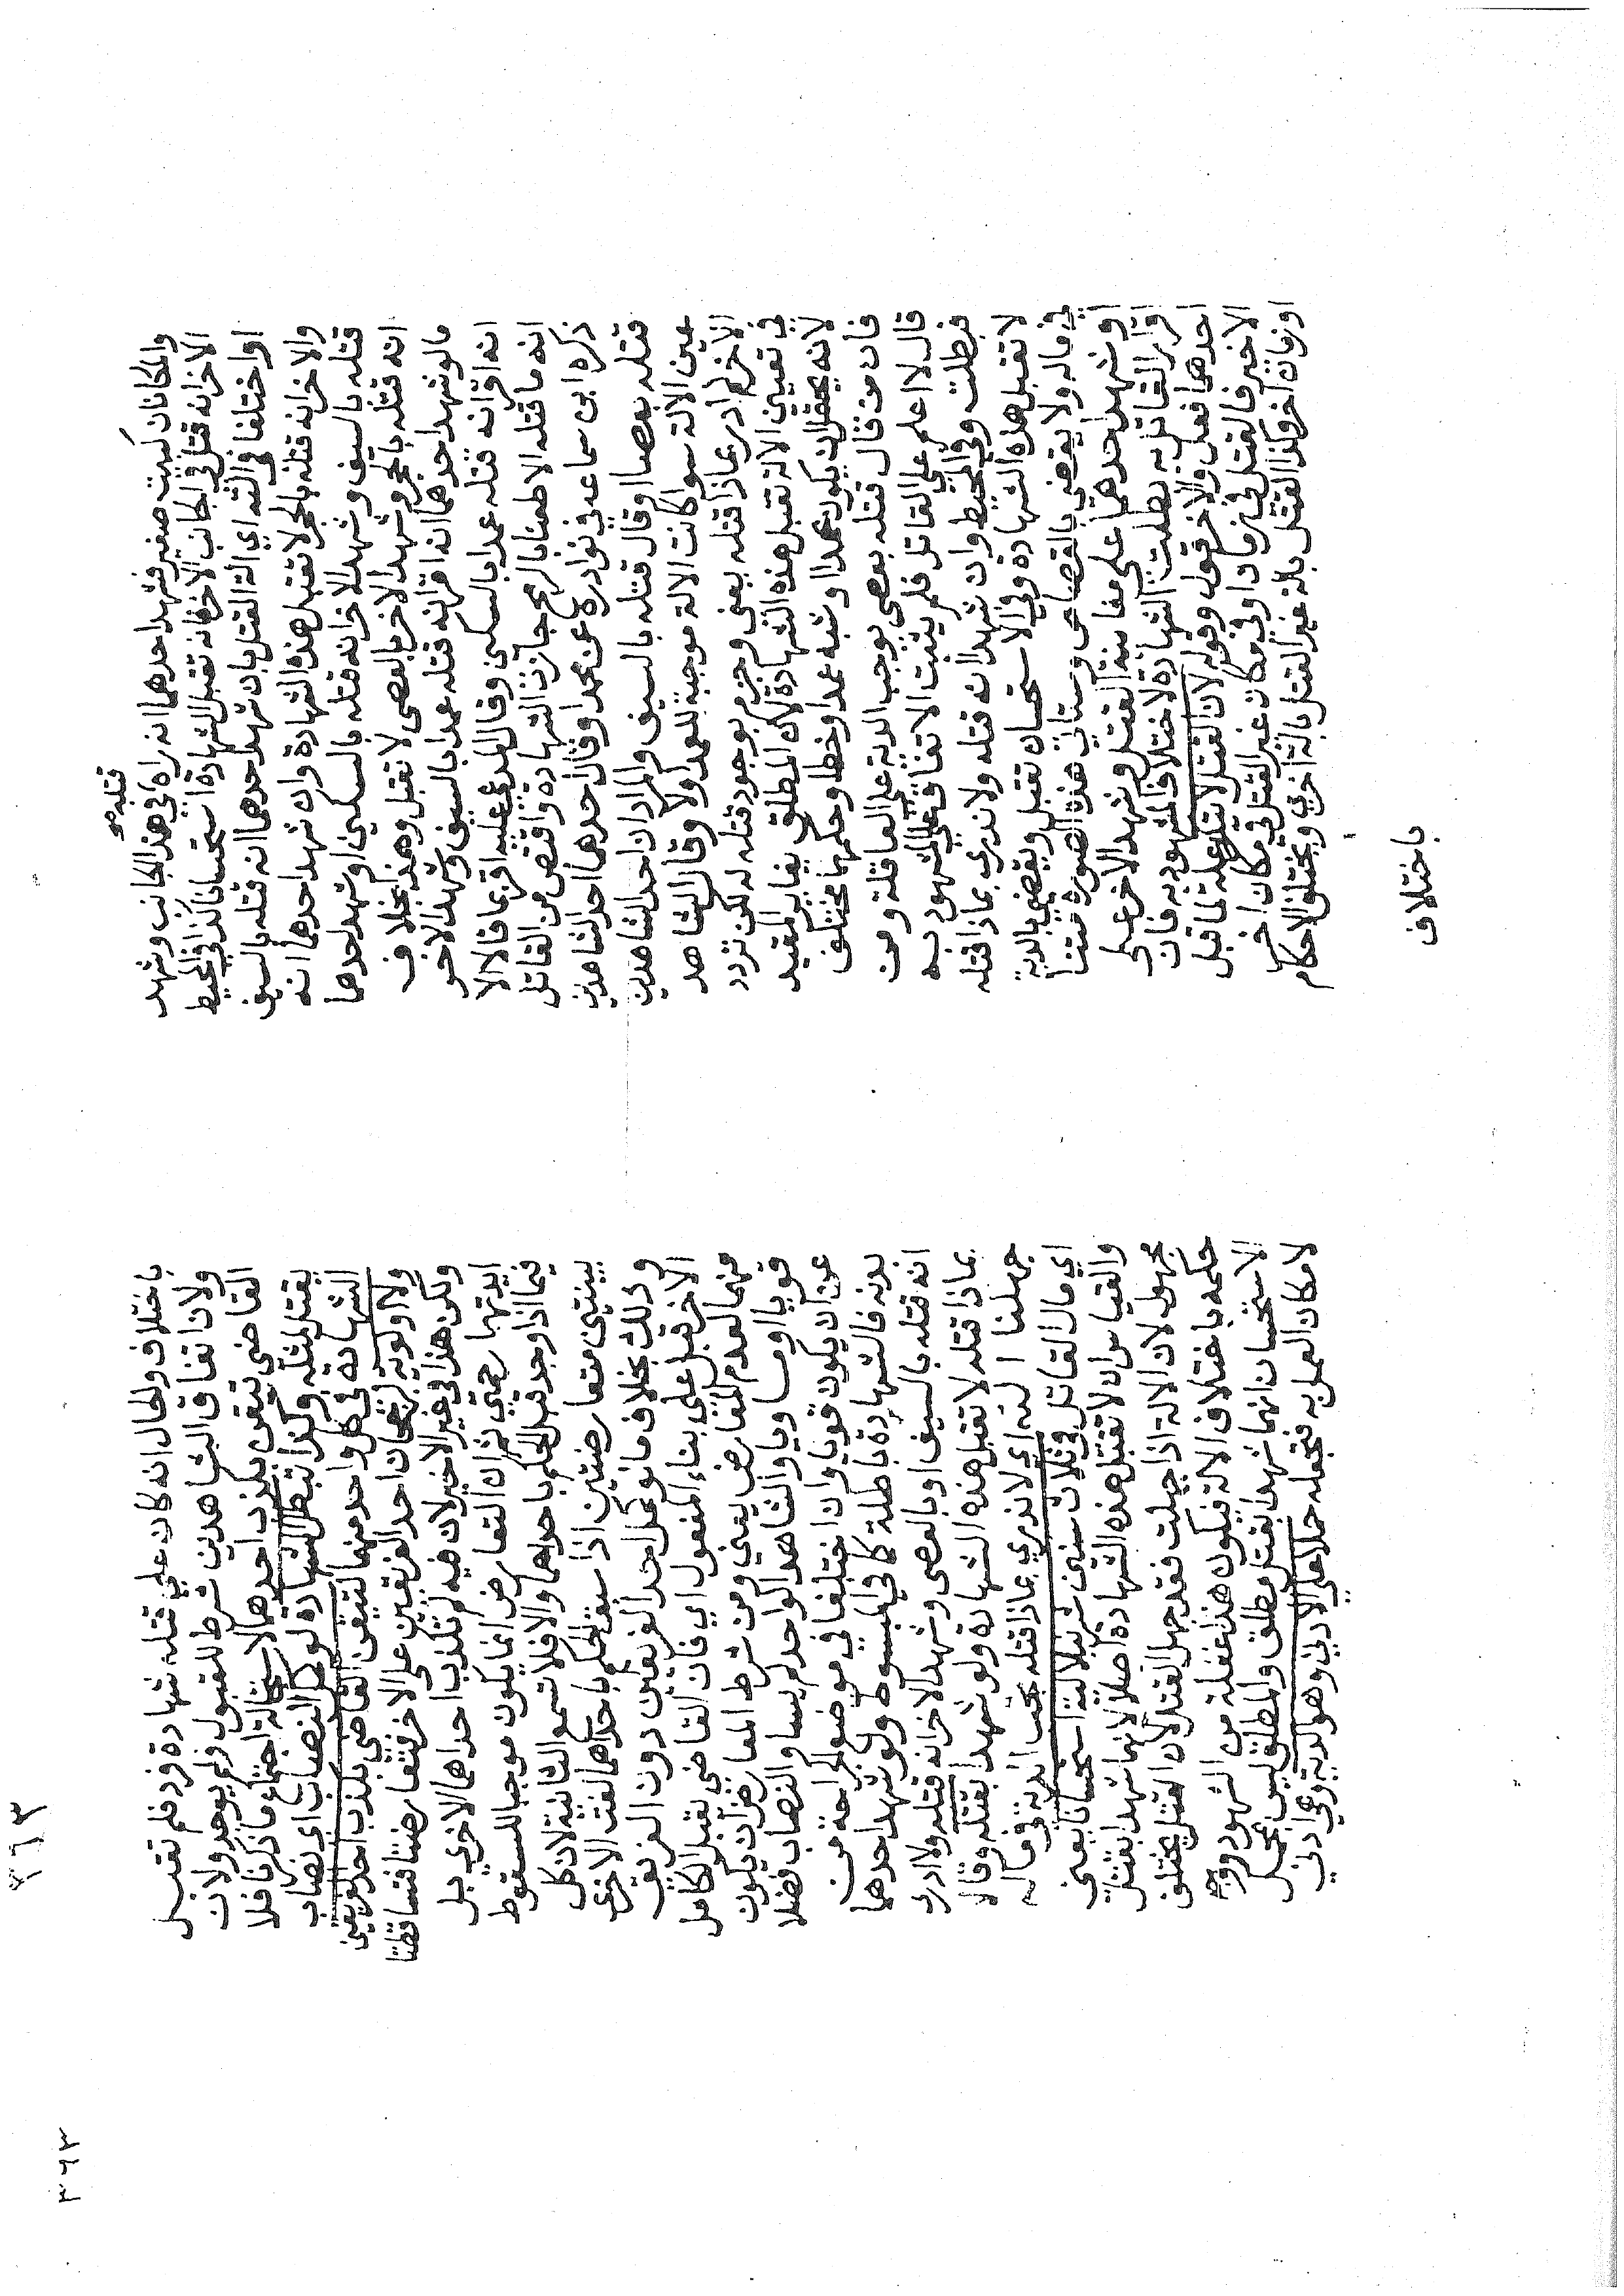 والمكانان كبيت صغير فشهد احدهما انه راه قتله في هذا الجانب وشهد
الاخر انه قتل في الجانب الاخر فانه تقبل الشهادة استحسانا كذا في المحيط
او اختلفا في الته اي الة القتل بان شهد احدهما انه قتله بالسيف
والاخر انه قتله بالحجر لا تقبل هذه الشهادة وان شهد احدهما انه
قتله بالسيف وشهد الاخر انه قتله بالسكين او شهد احدهما
انه قتله بالحجر وشهد الاخر بالعصى لا تقبل وهذا بخلاف
مالو شهد احدهما انه اقر انه قتله عمدا بالسيف وشهد الاخر
انه اقر انه قتله عمدا بالسكين وقال المدعي عليه اقر بما قالا الا
انه ما قتله الا طعنا بالرمح جازت الشهادة واقتص من القاتل
ذكره ابن سماعه في نوادره عن محمد او قال احدهما احد الشاهدين
قتله بعصا وقال قتله بالسيف والمراد ان احد الشاهدين
عين الالة سوا كانت الالة موجبة للعمد اولا وقال الشاهد
الاخر لم ادر بماذا قتله يعني وجزم بوجود قتله له لكن تردد
في تعيين الالة لا تقبل هذه الشهادة لان المطلق يغاير المقيد
لانه يحتمل ان يكون عمدا او شبه عمد او خطا وحكمها مختلف
فان من قال قتله بعصى يوجب الدية على العاقلة ومن
قال لا اعلم على القاتل فلم يثبت الاتفاق على المشهود به
فبطلت وفي المحيط وان شهدا انه قتله ولا ندري بماذا قتله
لا تقبل هذه الشهادة وفي الاستحسان تقبل ويقضي بالدية
في ماله ولا يقضي بالقصاص وستاتي هذه الصورة متنا
او شهد احدهما على معاينة القتل وشهد الاخر على
اقرار القاتل به بطلت الشهادة لاختلاف المشهود به فان
احدهما فعل والاخر قول وقوله لان القتل لا يتكرر علة لما قبل
الاخير فالقتل في زمان او في مكان غير القتل في مكان اخر
او زمان اخر وكذا القتل بالة غير القتل بالة اخرى ويختلف الاحكام
باختلاف
باختلاف والحال انه كان على قتله شهادة فرد فلم تقبل
ولان اتفاق الشاهدين شرط للقبول فلم يوجد ولان
القاضي تيقن بكذب احدهما لاستحالة اجتماع ما ذكرنا فلا
يقتل لمثله وكذا تبطل الشهادة لو كمل النصاب اي نصاب
الشهادة في كل واحد منهما لتيقن القاضي بكذب احد الفريقين
ولا اولوية لترجيحان احد الفريقين على الاخر فتعارضتا فتساقطتا
ولكن هذا في غير الاخير لان فيه لم تكذب احداهما الاخرى بل
ايدتها رحمتي ثم ان التعارض انما يكون موجبا للسقوط
فيما اذا وجد قبل الحكم باحداهما والا فلا تسمع الثانية لان كل
بينتين متعارضتين اذا سبق الحكم باحداهما لغت الاخرى
وذلك بخلاف ما لو كمل احد الفريقين دون الفريق
الاخر قبل على بناء المفعول اي فان القاضي يقبل الكامل
منهما لعدم المعارض يعني ومن شرط المعارض ان يكون
قويا او مساويا والشاهد الواحد لم يساو النصاب فضلا
عن ان يكون قويا وان اختلفا في موضع الجراحة من
بدنه فالشهادة باطلة كما في المبسوط ولو شهد احدهما
انه قتله بالسيف او بالعصى وشهد الاخر انه قتله ولا ادري
بماذا قتله لا تقبل هذه الشهادة ولو شهدا بقتله وقالا
جهلنا الته اي لا ندري بماذا قتله تجب الدية في ماله
اي مال القاتل في ثلاث سنين شرنبلالية استحسانا يعني
والقياس ان لا تقبل هذه الشهادة اصلا لانهما شهدا بقتل
مجهول لان الالة اذا جهلت فقد جهل القتل لان القتل يختلف
حكمه باختلاف الالة فيكون هذا غفلة من الشهود وجه
الاستحسان انهما شهدا بقتل مطلق والمطلق ليس بمجمل
لامكان العمل به فتجعله حملا على الادنى وهو الدية وعي ادنى
٣٦٣
٣٦٣